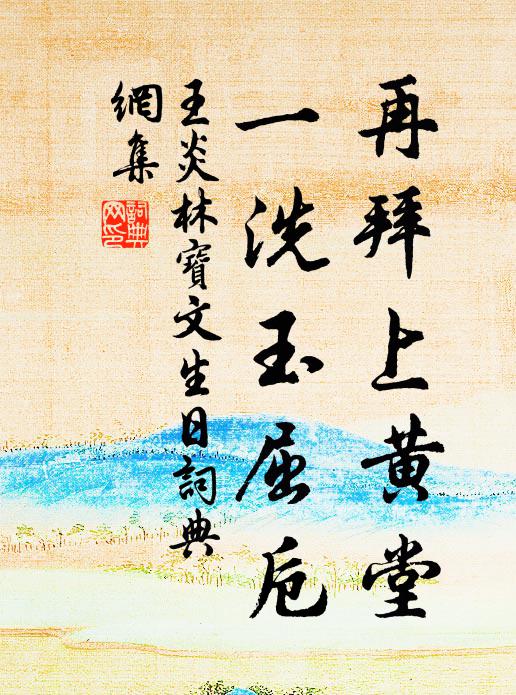 再拜上黃堂
一洗玉屈卮
王炎林寶文生日詞典
網集
詞典
网印